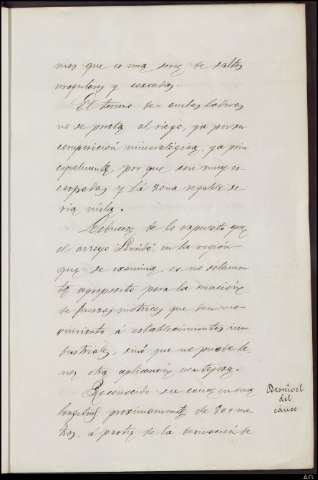 mas que es una serie de saltos
irregulares y cascadas.
El terreno de ambas laderas
no se presta al riego, ya por su
composición mineralógica, ya prin
cipalmente, por que son muy es
carpadas y la zona regable se
ria nula.
Deducese de lo expuesto que
el arroyo en la región
que se examina, es no solamen
te apropósito para la creación
de fuerzas motrices que den mo
vimiento á establecimientos in
dustriales, sinó que no puede te
ner otra aplicación ventajosa.
Reconocido ese cauce en una
longitud proximamente de 700 me
tros, á partir de la derivación de
Desnivel
del
cauce